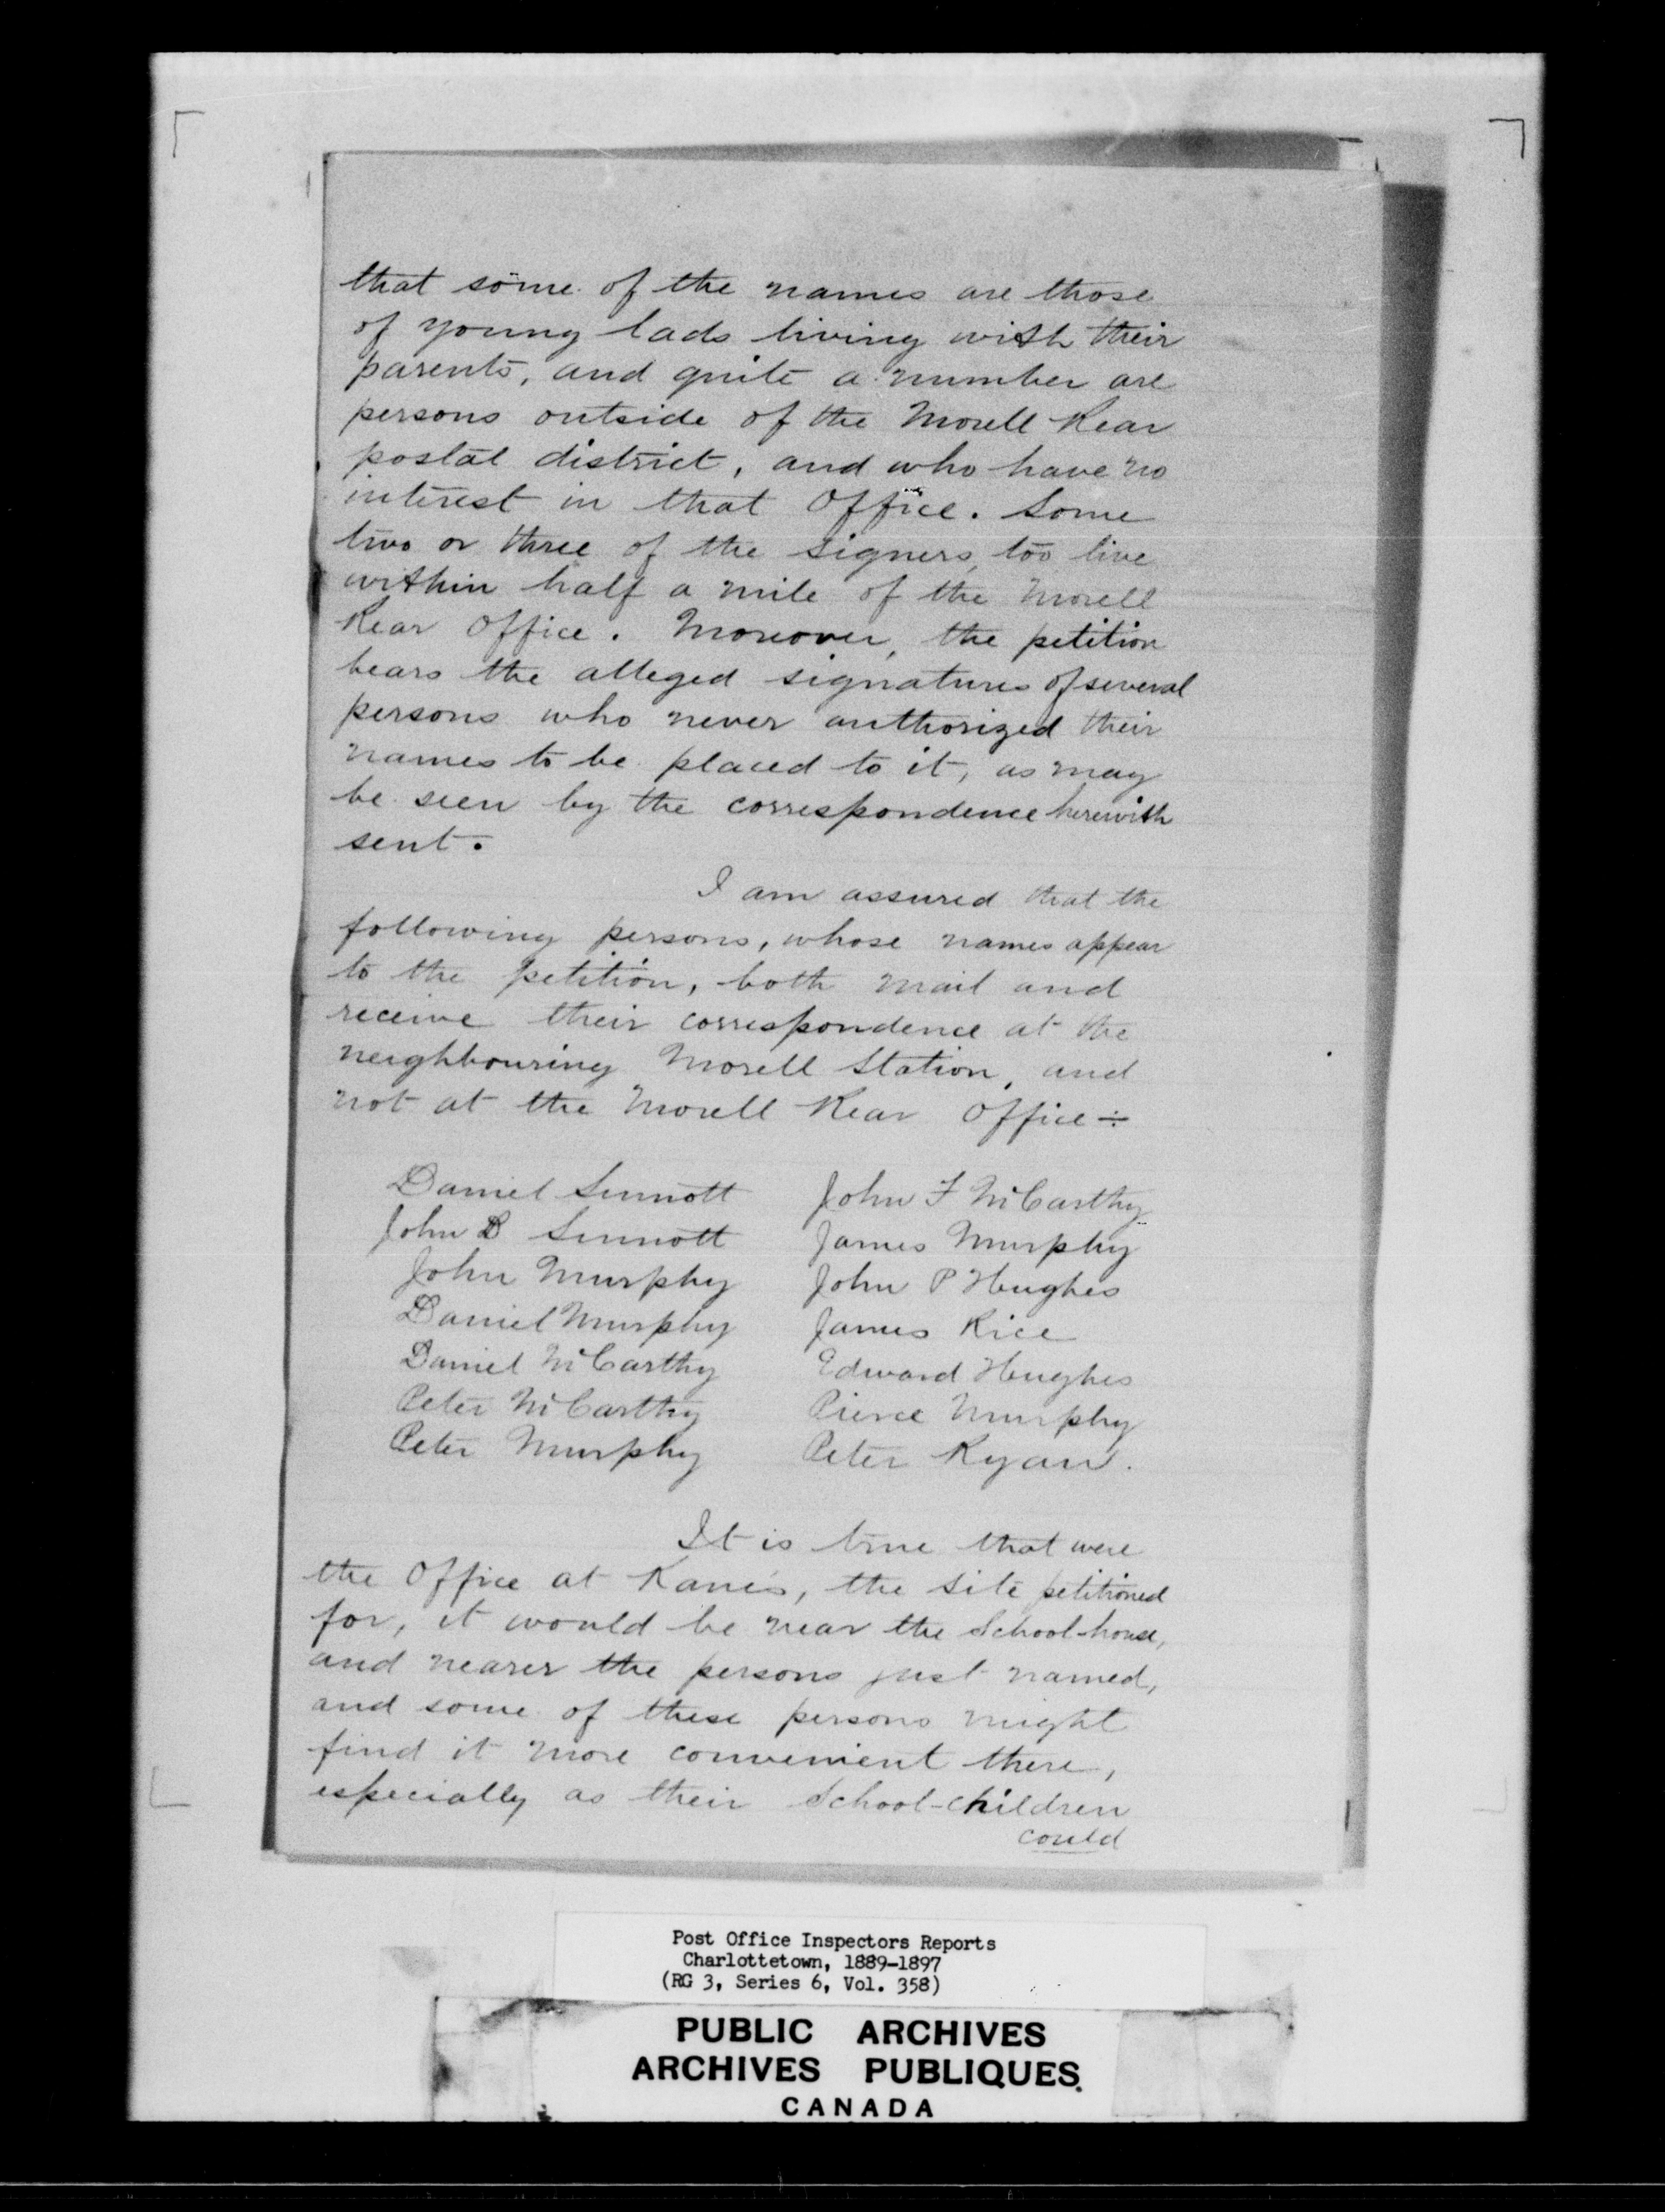 that some of the names are those
of young lads living with their
parents, and quite a number are
persons outside of the Morell Rear
postal district, and who have no
interest in that Office. Some
two or three of the signers, too live
within half a mile of the Morell
Rear Office. Moreover, the petition
bears the alleged signatures of several
persons who never authorized their
names to be placed to it, as may
be seen by the correspondence herewith
sent.
I am assured that the
following persons, whose names appear
to the petition, both mail and
receive their correspondence at the
neighbouring Morell Station, and
not at the Morell Rear Office÷
Daniel Sinnott John F McCarthy
John B Sinnott James Murphy
John Murphy John P Hughes
Daniel Murphy James Rice
Daniel McCarthy Edward Hughes
Peter McCarthy Pierce Murphy
Peter Murphy Peter Ryan.
It is true that were
the Office at Kane's, the site petitioned
for, it would be near the School-house,
and nearer the persons just named,
and some of these persons might
find it more convenient there,
especially as their School-children
could
Post Office Inspectors Reports
Charlottetown, 1889-1897
(RG 3, Series 6, Vol. 358)
PUBLIC ARCHIVES
ARCHIVES PUBLIQUES
CANADA